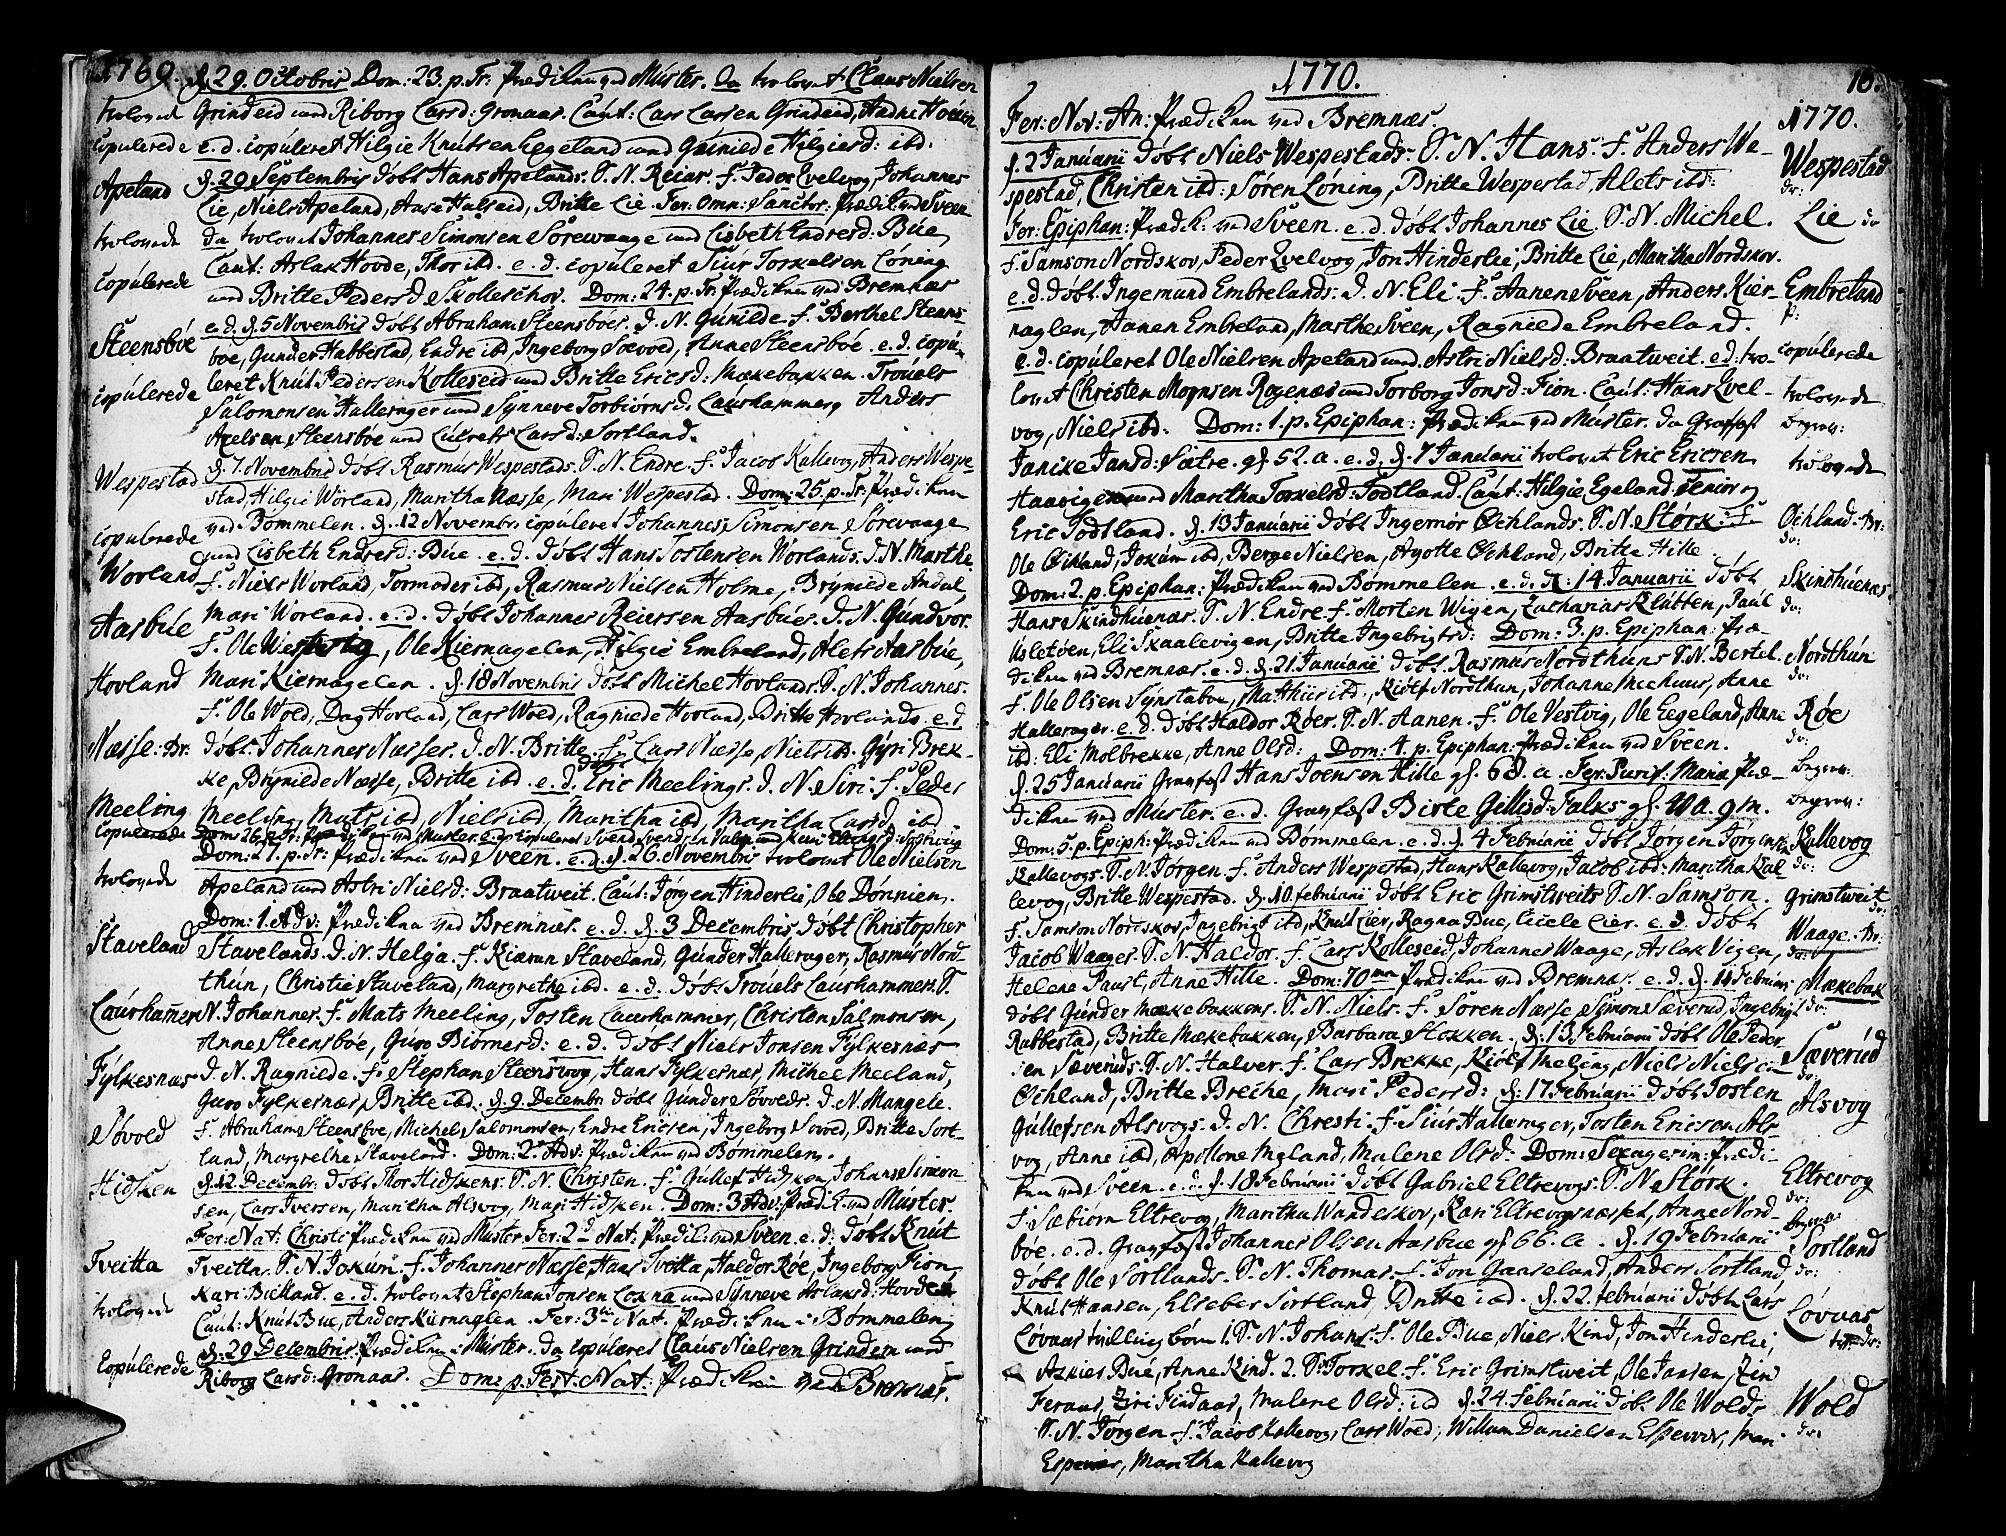 1769. d. 29. Octobris Dom: 23. p. Tr: Prædiken ved Múster. da trolovet Claus Nielsen
trolovede Grindeid und Riborg Larsd: Gronaas. Caút: Lars Larsen Grindeid, Aadne Hovden
copúlerede e. d. copúleret Hilgie Knútsen Egeland und Gúnilde Hilgiesd: ibd.
Apeland d. 29 Septembris døbt Hans Apelands. S. N. Reiar. f. Peder Evelvog, Johannes
Lie, Niels Apeland, Aase Halseid, Britte Lie. Fer: Omn: Sanctor: Prædik: ved Sveen
trolovede da trolovet Johannes Simonsen Sørewaage und Lisbeth Endresd: Búe
Caút: Aslak Hovde, Thor ibd. e. d. copúleret Siúr Torkelsen Løning
copúlerede und Britte Pedersd. Skolleschov. Dom: 24. p. Tr: Prædiken ved Bremnæs
Steensbóe e. d. d. 5 Novembris døbt Abraham Steensbóes. D. N. Gúnilde. f. Berthel Steens-
boe, Gunder Habbestad, Endre ibd, Ingeborg Søvoed, Anne Steensboe. e. d. copú-
copúlerede leret Knút Pedersen Kolleseid und Britte Ericsd: Mækebakken. Troúels
Salomonsen Hallerager und Synneve Torbiørnsd. Laurhammer, Anders
Axelsen Steensboe und Larsd: Sortland.
Wespestad d. 7. Novembris døbt Rasmús Wespestads. S. N. Endre. f. Jacob Kallevog, Anders Wespe-
stad, Hilgie Worland, Maritha Næsse, Mari Wespestad. Dom: 25. p. Tr: Prædiken
copulerede ved Bømmelen. d. 12 Novembr: copúleret Johannes Simonsen Sørevaage
und Lisbeth Endresd: Búe. e. d. døbt Hans Tostensen Worlands. D. N. Marthe.
Worland f. Niels Worland, Tormoder ibd, Rasmus Nielsen Holme, Brynilde Andal,
Mari Worland. e. d. døbt Johannes Reiersen Aasbúes. D. N. Gúndvor.
Aasbúe f. Ole Westvig, Ole Kiernagelen, Hilgie Embreland, Alets Aasbúe,
Mari Kiernagelen. d. 18 Novembris døbt Michel Hovlands. S. N. Johannes.
Hovland f. Ole Wold, Dag Hovland, Lars Woed, Ragnilde Hovland, Britte Hovlands. e. d.
Næsse: Br: døbt Johannes Næsses. D. N. Britte. f. Lars Næsse, Niels ib. Gýri Brek-
ke, Brýnilde Næsse, Britte ibd. e. d. døbt Eric Meelings. D. N. Siri: f. Peder
Meeling Meeling, Mats ibd, Niels ibd, Maritha ibd, Maritha Larsd, ibd
copulerede Dom: 26. p. Tr: Prædiken ved Muster. e. d. copuleret Svend Svendsen
Dom: 27. p. Tr: Prædiken ved Sveen. e. d. d. 26. Novembris trolovet Ole Nielsen
trolovede Apeland und Astri Nielsd: Braatweit. Caut: Jørgen Hinderlie, Ole Dønnien.
Dom: 1. Adv: Prædiken ved Bremnæs. e. d. d. 3 Decembris døbt Christopher
Staveland Stavelands. D. N. Helga. f. Kiæran Staveland, Gúnder Hallerager, Rasmús Nord-
thún, Christie Staveland, Margrethe ibd. e. d. døbt Troúels Laurhammers. S.
Laúrhamer N. Johannes. f. Mats Meeling, Tosten Laurhammer, Christen Salmonsen,
Anne Steensbóe, Gúro Biørnesd: e. d. døbt Niels Jonsen Fylkesnæs
Fýlkesnæs D. N. Ragnilde. f. Stephan Steensvog, Hans Fýlkesnæs, Michel Meeland,
Guro Fylkesnæs, Britte ibd. d. 9. Decembr: døbt Gúnder Søvoeds. D. N. Mangele.
Sóvoed f. Abraham Steensboe, Michel Salomonsen, Endre Ericsen, Ingeborg Sovoed, Britte Sort-
land, Margrethe Staveland. Dom: 2. Adv: Prædiken ved Bømmelen.
Hidsken d. 12. Decembr: døbt Thor Hidskens. S. N. Christen. f. Gúllef Hidsken, Johans Simon-
sen, Lars Iversen, Maritha Alsvog, Mari Hidsken. Dom: 3 Adv: Prædik: ved Muster.
Fer: Nat: Christi Prædiken ved Múster Fer: 2 Nat: Prædik: ved Sveen. e. d: døbt Knút
Tveitta Tveitta. S. N. Jokúm. f. Johannes Næsse, Hans Tvetta, Haldor Róe, Ingeborg Fion,
Kari Bielland. e. d. trolovet Stephan Jonsen Loxna und Synneve Aslaksd: Hovde
trolovede Caút: Knút Búe, Anders Kiernaglen. Fer: 3 Nat: Prædiken i Bømmelen,
d. 29 Decembris Prædiken i Múster. da copúleres Claús Nielsen Grindem und
Copúlerede Riborg Larsd: Gronaas. Dom: p. Fest: Nat: Prædiken ved Bremnæs.
1770.
10.
Fer: Nov: An: Prædiken ved Bremnæs. 1770.
d. 2 Janúarii døbt Niels Wespestads: S. N. Hans: f. Anders We- Wespestad
spestad, Christen ibd: Søren Lóning, Britte Wespestad, Alets ibd: do:
Fer: Epiphan: Prædik: ved Sveen. e. d. døbt Johannes Lie. S. N. Michel. Lie do
f. Samson Nordskov, Peder Evelvog, Jon Hinderlie, Britte Lie, Maritha Nordskov.
e. d. døbt Ingemund Embrelands: D. N. Eli. f. Aanen Sveen, Anders Kier- Embreland
naglen, Aanen Embreland, Marthe Sveen, Ragnilde Embreland. p:
e. d. copúleret Ole Nielsen Apeland und Astri Nielsd: Braatweit. e. d: tro- copúlerede
lovet Christen Mognsen Rogenæs und Torborg Jonsd: Fion. Caút: Hans Evel- trolovede
vog, Niels ibd. Dom: 1. p. Epiphan: Prædiken ved Múster. da Grafæst Begrav:
Janike Jansd: Sætre. gl. 52. a. e. d. d. 7 Janúarii trolovet Eric Ericsen trolovede
Haavigen und Maritha Torkelsd: Todtland. Caút: Hilgie Egeland Senior og
Eric Todtland. d. 13 Janúarii døbt Ingemór Øchlands. S. N. Størk: f. Øchland: Br:
Ole Øchland, Jokúm ibd, Berge Nielsen, Agotte Øchland, Britte Hille. do:
Dom: 2. p. Epiphan: Prædiken ved Bømmelen. e. d. d: 14. Janúarii døbt Skindhúenæs
Hans Skindhúenæs. S. N. Endre. f. Morten Wigen, Zacharias Klúbben, Paúl do:
Usletóen, Eli Skaalevigen, Britte Ingebrigtsd: Dom: 3. p. Epiphan: Præ-
diken ved Bremnæs. e. d. d. 21 Janúarii døbt Rasmús Nordthúns. S. N. Bertel. Nordthún
f. Ole Olsen Synstaboe, Matthies ibd, Kiølf Nordthun, Johanne Meehuus, Anne do:
Hallerager. e. d. døbt Haldor Róes. S. N. Aanen. f. Ole Vestvig, Ole Eegeland, Anne Róe
ib. Eli Molbrekke, Anne Olsd: Dom: 4. p. Epiphan: Prædiken ved Sveen. do:
d. 25 Janúarii Gravfæst Hans Joensen Hille gl. 68. a. Fer: Purif: Mariæ Præ- Begrav:
diken ved Múster. e. d. Gravfæst Birte Gillisd: Falks gl. 40 a. 9 m. Begrav:
Dom: 5. p. Epiph: Prædiken ved Bømmelen. e. d. d. 4 Febrúarii døbt Jørgen Jørgensen Kallevog
Kallevogs. S. N. Jørgen. f. Anders Wespestad, Hans Kallevog, Jacob ibd: Maritha Kal- do:
levog, Britte Wespestad. d. 10 februarii døbt Eric Grimstweits. S. N. Samson. Grimstweit
f. Samson Nordskov, Ingebrigt ibd, Knút Lier, Ragna Bue, Cicele Lier. e. d. døbt do:
Jacob Waages. S. N. Haldor. f. Lars Kolleseid, Johannes Waage, Aslak Vigen, Waage: Br:
Helene Paust, Anne Hille. Dom: 70ma Prædiken ved Bremnæs. e. d. d. 11 Febrúari Mækebak
døbt Gúnder Mækebakkens. S. N. Niels. f. Søren Næsse, Simon Sæverud, Ingebrigt do:
Rabbestad, Britte Mækebakken, Barbara Stokken. d. 13 Febrúarii døbt Ole Peder-
sen Sæverúds. S. N. Halver. f. Lars Brekke, Kiólf Meling, Niels Nielsen Sæverúd
Øchland, Britte Breche, Mari Pedersd: d. 17 Febrúarii døbt Tosten do:
Gúllefsen Alsvogs. D. N. Chresti. f. Siúr Hallerager, Tosten Ericson Als- Alsvog
vog, Anne ibd, Apollone Ingland, Malene Olsd. Dom: Sexagesim: Prædi-
ken ved Sveen. e. d. d. 18 Febrúarii døbt Gabriel Eltrevogs. S. N. Stórk. Eltrevog
f. Sæbiørn Eltrevog, Maritha Wandeskov, Kari Eltrevognæsset, Anne Nord- do:
bóe. e. d. Gravfæst Johannes Olsen Aasbúe gl. 66. a. d. 19 Febrúarii begrav:
døbt Ole Sortlands. S. N. Thomas. f. Jon Gaaseland, Anders Sortland, Sortland
Knút Hansen, Elseber Sortland, Britte ibd. d. 22. februarii døbt Lars do:
Lóvaas tvilling børn 1. S. N. Johans. f. Ole Búe, Niels Kind, Jon Hinderlie, Lóvaas
Askier Búe, Anne Kind. 2. S. Torkel. f. Eric Grimstweit, Ole Jansen,
Feraas, Ziri Findaas, Malene Olsd: ibd d. 24. Febrúarii døbt Ole Wolds Wold
S. N. Jørgen. f. Jacob Kallevog, Lars Woed, Willum Danielsen Espevær, do:
Espevær, Maritha Kallevog